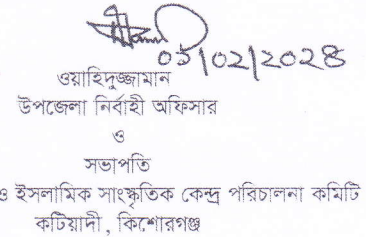 05/02/2024
ওয়াহিদুজ্জামান
উপজেলা নির্বাহী অফিসার
ও
সভাপতি
ও ইসলামিক সাংস্কৃতিক কেন্দ্র পরিচালনা কমিটি
কটিয়াদী, কিশোরগঞ্জ